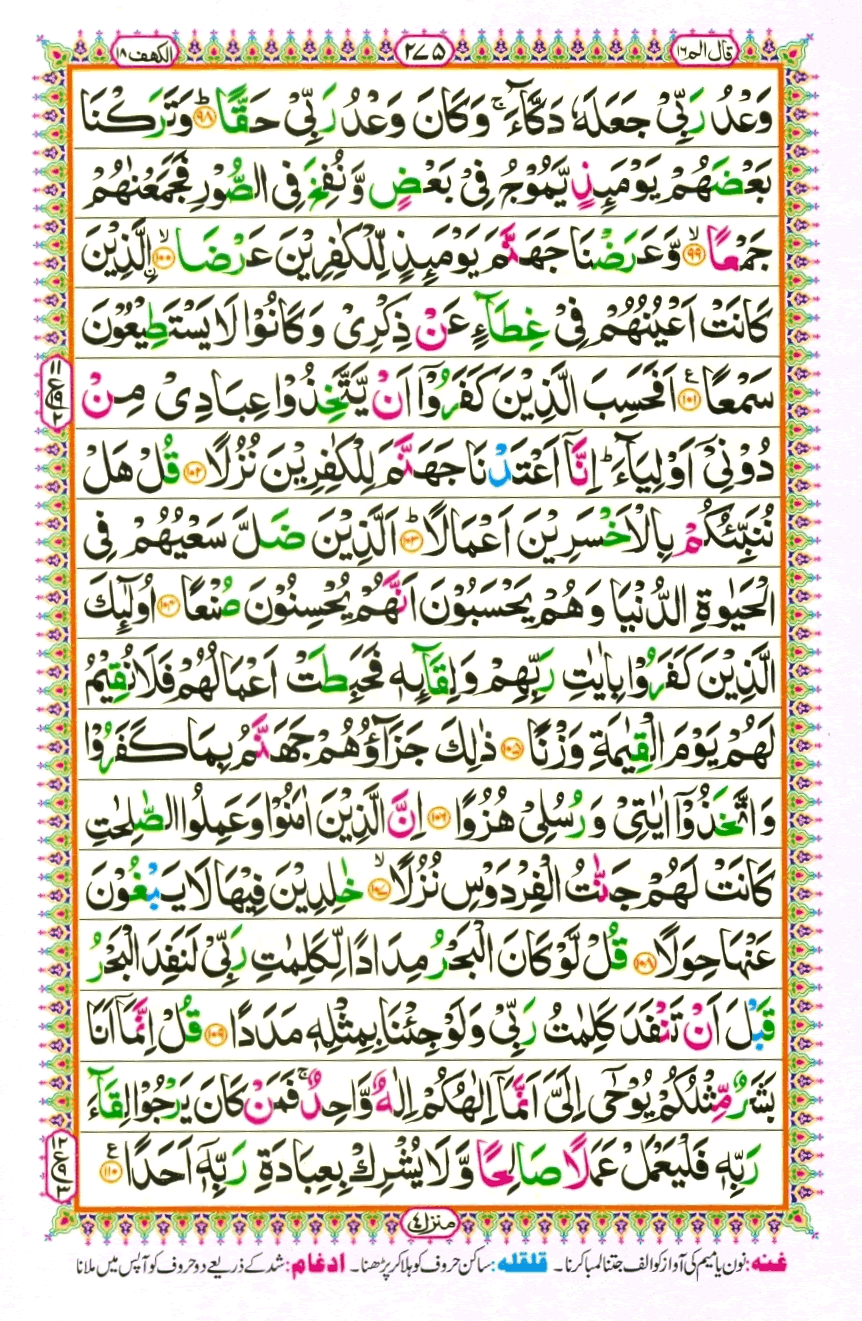 قال الم ١٦
٢٧٥
الكهف ١٨
وَعْدُ رَبِّیْ جَعَلَهٗ دَكَّآءَ ۚ وَكَانَ وَعْدُ رَبِّیْ حَقًّا ؕ ﴿۹۸﴾ وَتَرَكْنَا
بَعْضَهُمْ یَوْمَىِٕذٍ یَّمُوْجُ فِیْ بَعْضٍ وَّنُفِخَ فِی الصُّوْرِ فَجَمَعْنٰهُمْ
جَمْعًا ۙ ﴿۹۹﴾ وَّعَرَضْنَا جَهَنَّمَ یَوْمَىِٕذٍ لِّلْكٰفِرِیْنَ عَرْضَا ۙ ﴿۱۰۰﴾ ِ۟الَّذِیْنَ
كَانَتْ اَعْیُنُهُمْ فِیْ غِطَآءٍ عَنْ ذِكْرِیْ وَكَانُوْا لَا یَسْتَطِیْعُوْنَ
سَمْعًا ﴿۱۰۱﴾ ع اَفَحَسِبَ الَّذِیْنَ كَفَرُوْۤا اَنْ یَّتَّخِذُوْا عِبَادِیْ مِنْ
دُوْنِیْۤ اَوْلِیَآءَ ؕ اِنَّاۤ اَعْتَدْنَا جَهَنَّمَ لِلْكٰفِرِیْنَ نُزُلًا ﴿۱۰۲﴾ قُلْ هَلْ
نُنَبِّئُكُمْ بِالْاَخْسَرِیْنَ اَعْمَالًا ؕ ﴿۱۰۳﴾ اَلَّذِیْنَ ضَلَّ سَعْیُهُمْ فِی
الْحَیٰوةِ الدُّنْیَا وَهُمْ یَحْسَبُوْنَ اَنَّهُمْ یُحْسِنُوْنَ صُنْعًا ﴿۱۰۴﴾ اُولٰٓىِٕكَ
الَّذِیْنَ كَفَرُوْا بِاٰیٰتِ رَبِّهِمْ وَلِقَآىِٕهٖ فَحَبِطَتْ اَعْمَالُهُمْ فَلَا نُقِیْمُ
لَهُمْ یَوْمَ الْقِیٰمَةِ وَزْنًا ﴿۱۰۵﴾ ذٰلِكَ جَزَآؤُهُمْ جَهَنَّمُ بِمَا كَفَرُوْا
وَاتَّخَذُوْۤا اٰیٰتِیْ وَرُسُلِیْ هُزُوًا ﴿۱۰۶﴾ اِنَّ الَّذِیْنَ اٰمَنُوْا وَعَمِلُوا الصّٰلِحٰتِ
كَانَتْ لَهُمْ جَنّٰتُ الْفِرْدَوْسِ نُزُلًا ۙ ﴿۱۰۷﴾ خٰلِدِیْنَ فِیْهَا لَا یَبْغُوْنَ
عَنْهَا حِوَلًا ﴿۱۰۸﴾ قُلْ لَّوْ كَانَ الْبَحْرُ مِدَادًا لِّكَلِمٰتِ رَبِّیْ لَنَفِدَ الْبَحْرُ
قَبْلَ اَنْ تَنْفَدَ كَلِمٰتُ رَبِّیْ وَلَوْ جِئْنَا بِمِثْلِهٖ مَدَدًا ﴿۱۰۹﴾ قُلْ اِنَّمَاۤ اَنَا
بَشَرٌ مِّثْلُكُمْ یُوْحٰۤی اِلَیَّ اَنَّمَاۤ اِلٰهُكُمْ اِلٰهٌ وَّاحِدٌ ۚ فَمَنْ كَانَ یَرْجُوْا لِقَآءَ
رَبِّهٖ فَلْیَعْمَلْ عَمَلًا صَالِحًا وَّلَا یُشْرِكْ بِعِبَادَةِ رَبِّهٖۤ اَحَدًا ﴿۱۱۰﴾ ع
۱۱ ع ۱۹ ۲
۱۲ ع ۹ ۳
منزل ٤
غنه: نون یا میم کی آواز کو الف جتنا لمبا کرنا۔ قلقله: ساکن حروف کو ہلا کر پڑھنا۔ ادغام: شد کے ذریعے دو حروف کو آپس میں ملانا